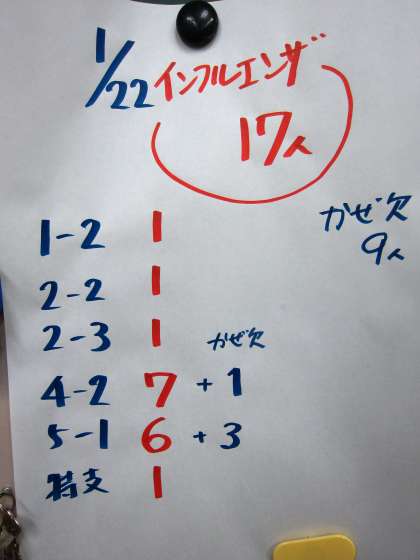 1/22 インフルエンザ
17人
かぜ欠
9人
1-2 1
2-2 1
2-3 1
かぜ欠
4-2 7 + 1
5-1 6 + 3
特支 1